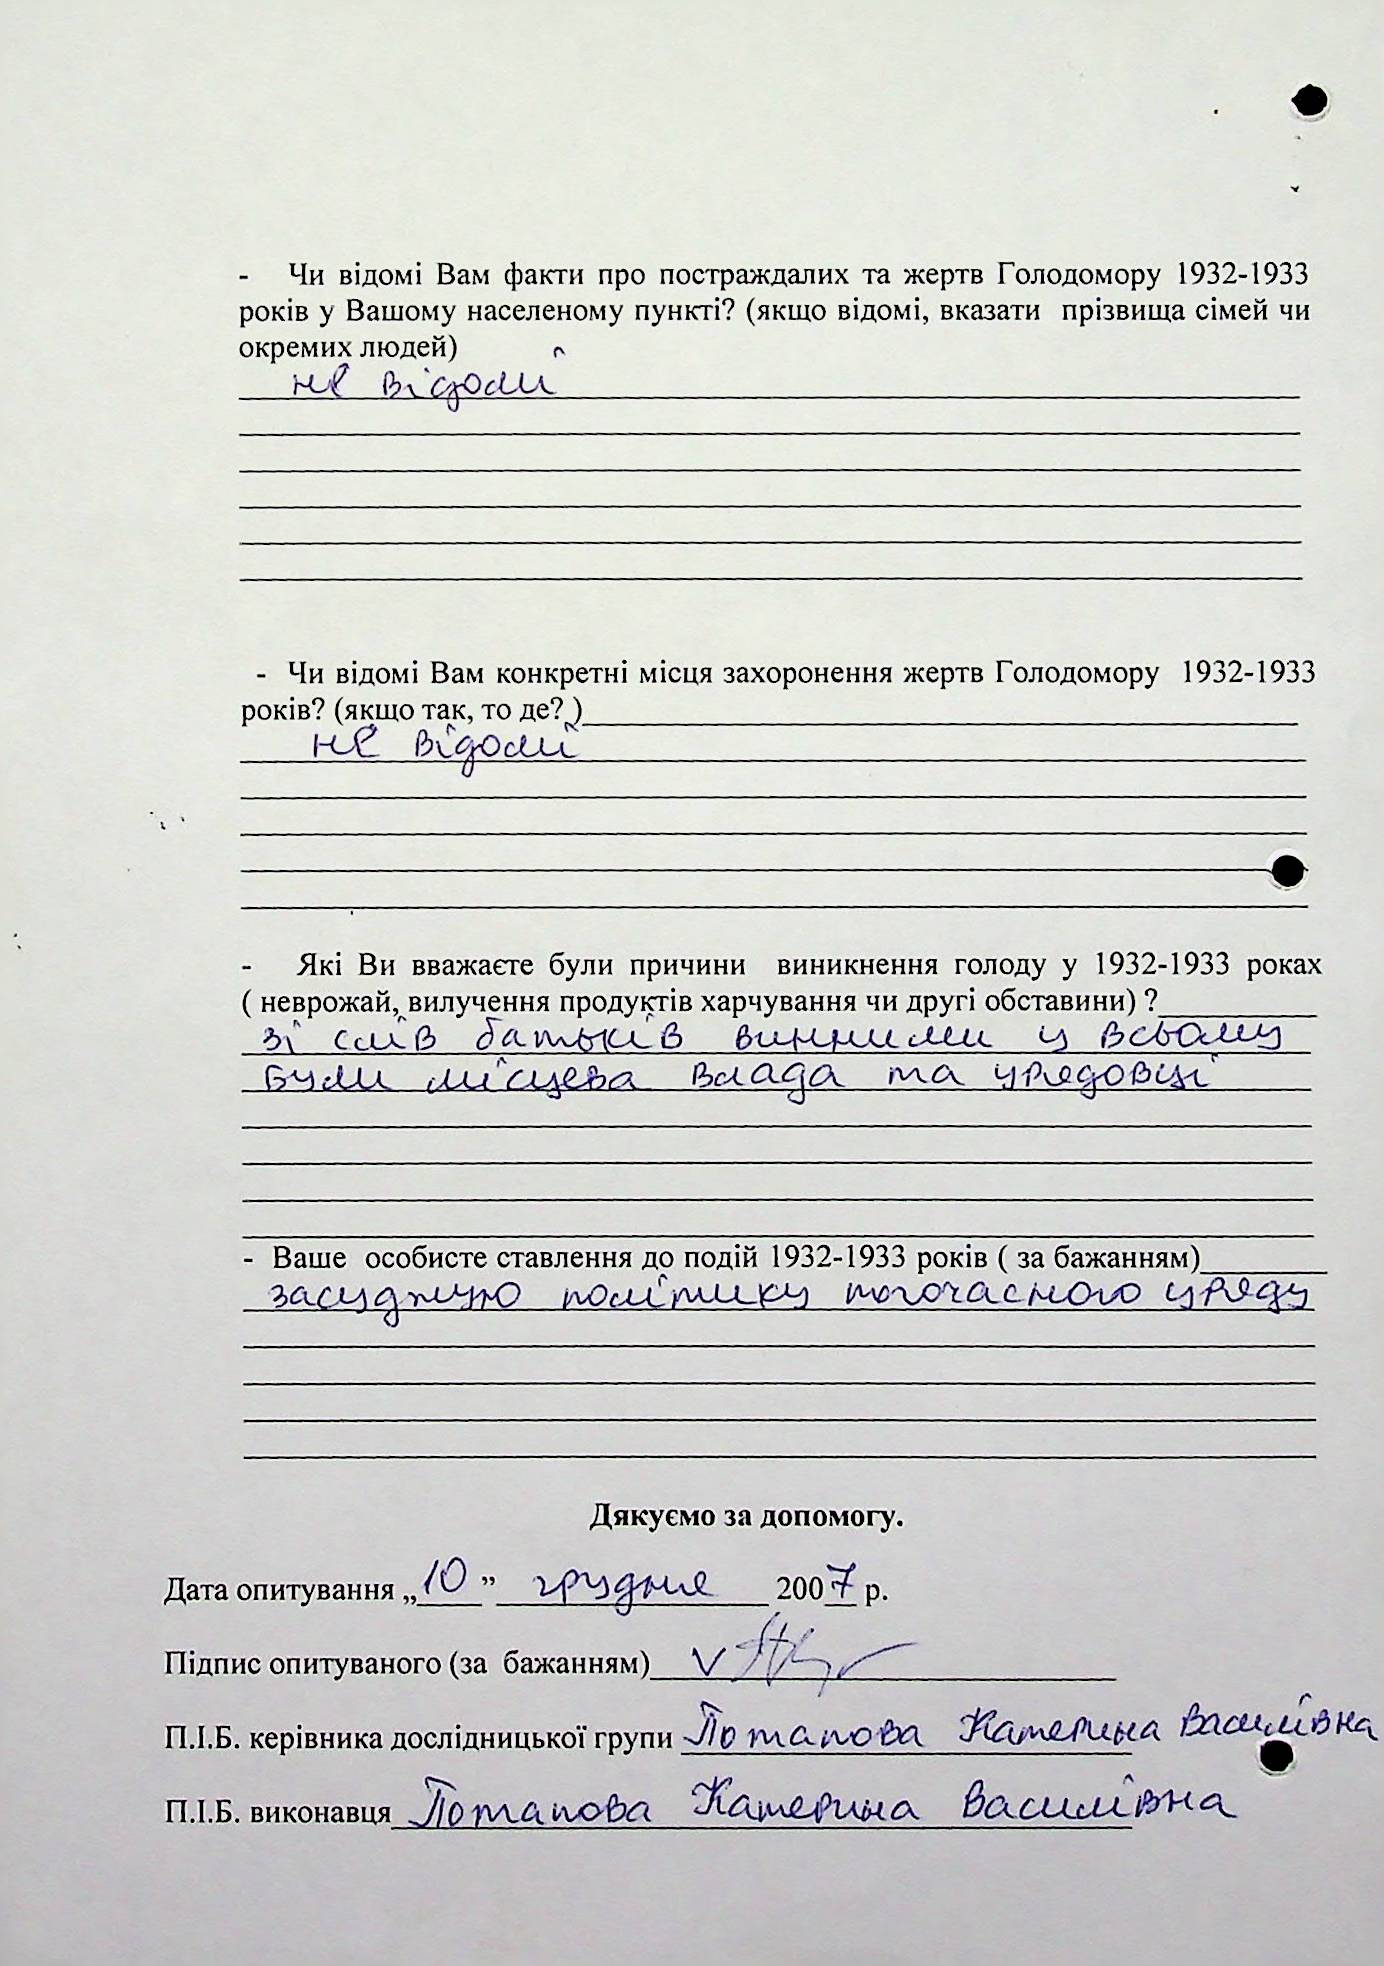 - Чи відомі Вам факти про постраждалих та жертв Голодомору 1932-1933
років у Вашому населеному пункті? (якщо відомі, вказати прізвища сімей чи
окремих людей)
не відомі
- Чи відомі Вам конкретні місця захоронення жертв Голодомору 1932-1933
років? (якщо так, то де? )
не відомі
- Які Ви вважаєте були причини виникнення голоду у 1932-1933 роках
( неврожай, вилучення продуктів харчування чи другі обставини) ?
зі слів батьків винними у всьому
були місцева влада та урядовці
- Ваше особисте ставлення до подій 1932-1933 років ( за бажанням)
засуджую політику тогочасного уряду
Дякуємо за допомогу.
Дата опитування „10” грудня 2007 р.
Підпис опитуваного (за бажанням) v
П.І.Б. керівника дослідницької групи Потапова Катерина Василівна
П.І.Б. виконавця Потапова Катерина Василівна